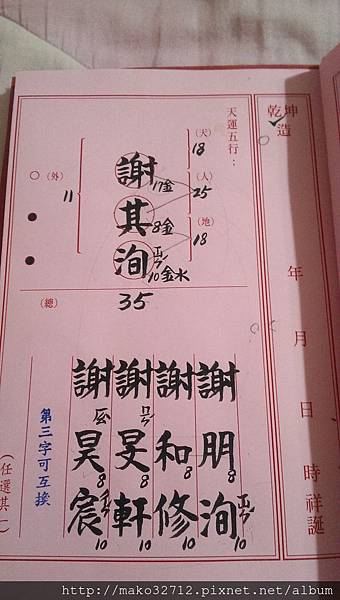 坤
乾造
年月日時祥誕
天運五行：
(天)
18
(人)
25
(地)
18
謝 17金
其 8金
洵 10金水
(外)
11
(總)
35
謝朋洵
8
10
謝和修
8
10
謝旻軒
8
10
謝昊宸
8
10
第三字可互換
(任選其一)
http://mako32712.pixnet.net/album